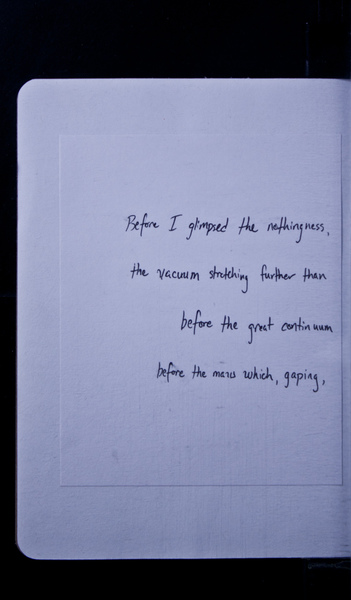 Before I glimpsed the nothingness,
the vacuum stretching further than
before the great continuum
before the maws which, gaping,